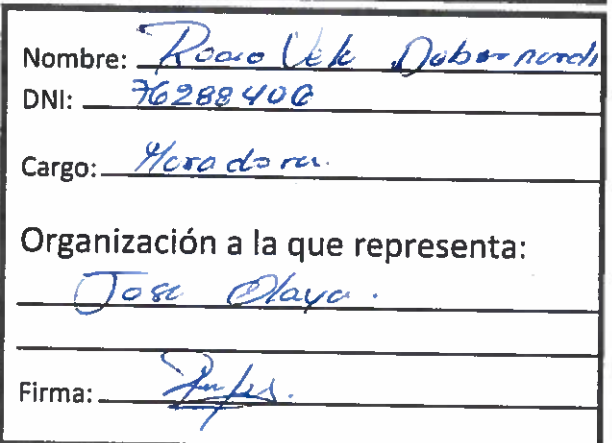 Nombre: Rocio Vele Dubernardi
DNI: 76288406
Cargo: Moradora.
Organización a la que representa:
Jose Olaya.
Firma: